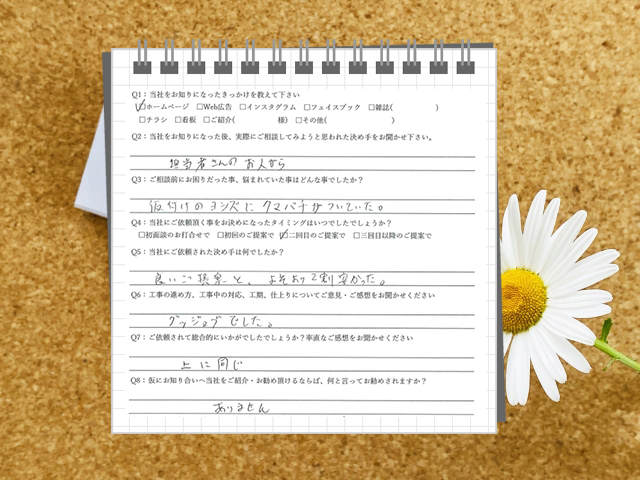 Q1：当社をお知りになったきっかけを教えて下さい
☑ホームページ □Web広告 □インスタグラム □フェイスブック □雑誌( )
□チラシ □看板 □ご紹介( 様) □その他( )
Q2：当社をお知りになった後、実際にご相談してみようと思われた決め手をお聞かせ下さい。
担当者さんのお人がら
Q3：ご相談前にお困りだった事、悩まれていた事はどんな事でしたか？
仮付けのヨシズにクマバチがついていた。
Q4：当社にご依頼頂く事をお決めになったタイミングはいつでしたでしょうか？
□初面談のお打合せで □初回のご提案で ☑二回目のご提案で □三回目以降のご提案で
Q5：当社にご依頼された決め手は何でしたか？
良いご提案と、よそより2割安かった。
Q6：工事の進め方、工事中の対応、工期、仕上りについてご意見・ご感想をお聞かせください
グッジョブでした。
Q7：ご依頼されて総合的にいかがでしたでしょうか？率直なご感想をお聞かせください
上に同じ
Q8：仮にお知り合いへ当社をご紹介・お勧め頂けるならば、何と言ってお勧めされますか？
ありません